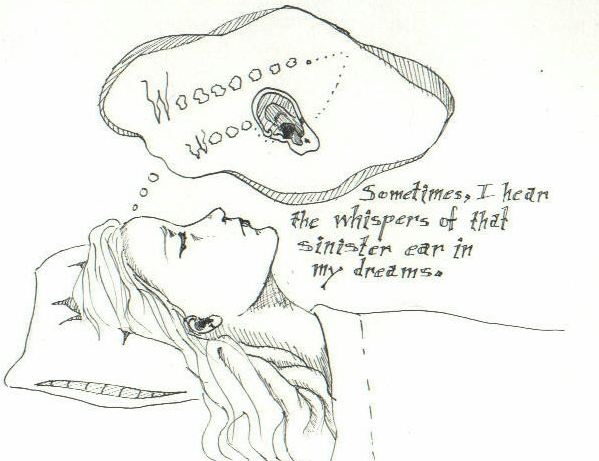 Wooooooo
Wooo
Sometimes, I hear
the whispers of that
sinister ear in
my dreams.